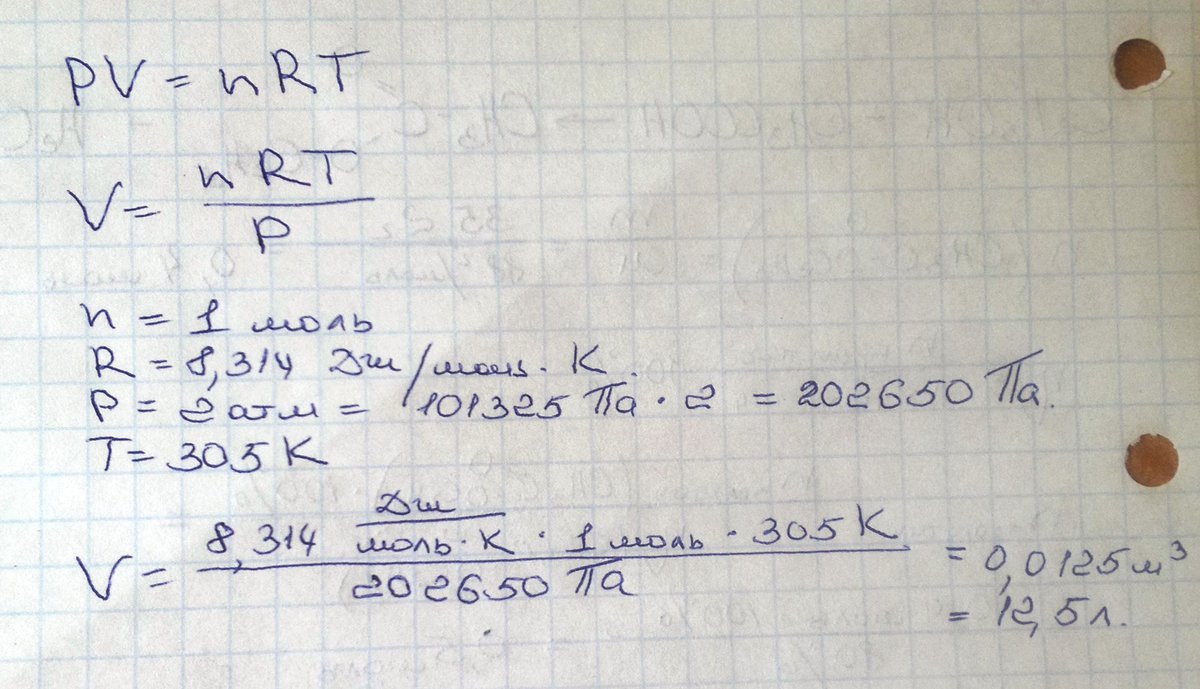 PV = nRT
V = nRT / P
n = 1 моль
R = 8,314 Дж/моль · K.
P = 2 атм = 101325 Па · 2 = 202650 Па.
T = 305 K
V = 8,314 Дж / моль · K · 1 моль · 305 K / 202650 Па = 0,0125 м³
= 12,5 л.